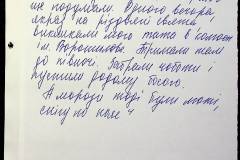 ще подумали. Одного вечора,
якраз на різдвяні свята,
викликали мого тата в сельсовет
ім. Ворошилова. Тримали там
до півночі. Забрали чоботи і
пустили додому босого.
А морози тоді були люті,
снігу по коліс"